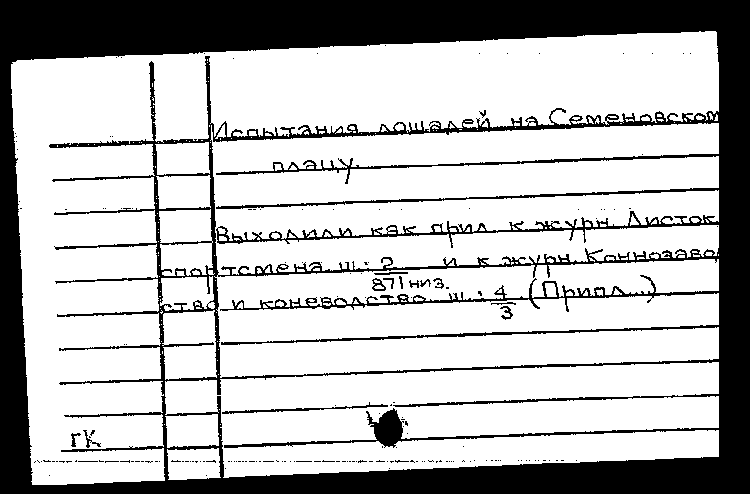 Испытания лошадей на Семеновском
плацу.
Выходили как прил. к журн. Листок
спортсмена ш.: 2/871 низ. и к журн. Коннозавод
ство и коневодство ш.: 4/3 (Припл...)
гК